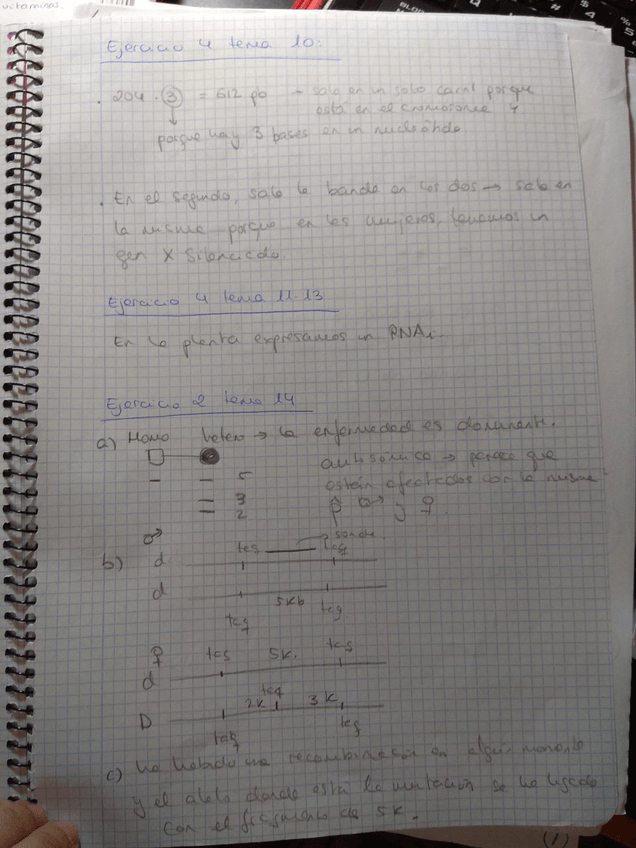 vitaminas.
Ejercicio 4 tema 10:
. 204 . 3 = 612 pb → sale en un solo carril porque
está en el cromosoma y
porque hay 3 bases en un nucleótido
. En el segundo, sale la banda en los dos → sale en
la misma porque en las mujeres, tenemos un
gen X silenciado.
Ejercicio 4 tema 11-13
En la planta expresamos un RNAi.
Ejercicio 2 tema 14
a) Homo hetero → la enfermedad es dominante.
autosómica → parece que
5 están afectados con la misma
3 p ♂ y ♀
2
♂
b) d teq sonda teq
d 5Kb
teq teq
♀ teq 5K. teq
d
teq
D 2K 3K
teq teq
c) Ha habido una recombinación en algún momento
y el alelo donde está la mutación se ha ligado
con el fragmento de 5K.